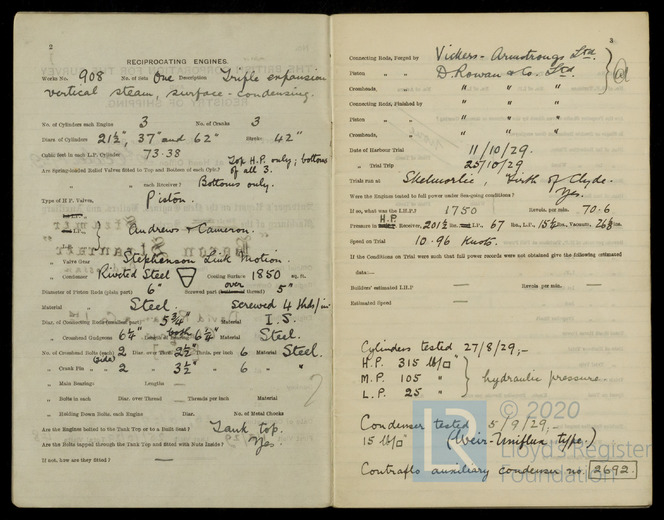 2
RECIPROCATING ENGINES.
Works No. 908 No. of Sets One Description Triple expansion
vertical steam, surface-condensing.
No. of Cylinders each Engine 3 No. of Cranks 3
Diars. of Cylinders 21½", 37" and 62" Stroke 42"
Cubic feet in each L.P. Cylinder 73.38
Top H.P. only; bottoms
Are Spring-loaded Relief Valves fitted to Top and Bottom of each Cylr.? of all 3.
" " each Receiver? Bottoms only.
Type of H.P. Valves, Piston.
Andrews & Cameron.
" Valve Gear Stephenson Link Motion.
" Condenser Riveted Steel Cooling Surface 1850 sq. ft.
Diameter of Piston Rods (plain part) 6" Screwed part over thread) 5"
Material Steel. Screwed 4 thds/in
Diar. of Connecting Rods (smallest part) 5¾" Material I.S.
" Crosshead Gudgeons 6¼" 6¼" Material Steel.
No. of Crosshead Bolts (each) (side) 2 Diar. over Thrd. 2½" Thrds. per inch 6 Material Steel.
" Crank Pin " " 2 " 3½" " 6 " "
" Main Bearings Lengths —
" Bolts in each Diar. over Thread — Threads per inch Material
" Holding Down Bolts, each Engine Diar. No. of Metal Chocks
Are the Engines bolted to the Tank Top or to a Built Seat? Tank top.
Are the Bolts tapped through the Tank Top and fitted with Nuts Inside? Yes.
If not, how are they fitted? —
3
Connecting Rods, Forged by Vickers-Armstrongs Ltd.
Piston " " D. Rowan & Co. Ltd.
Crossheads, " " " "
Connecting Rods, Finished by " " "
Piston " " " " "
Crossheads, " " " "
Date of Harbour Trial 11/10/29.
" Trial Trip 25/10/29
Trials run at Skelmorlie, Firth of Clyde.
Were the Engines tested to full power under Sea-going conditions? Yes.
If so, what was the I.H.P.? 1750 Revols. per min. 70.6
Pressure in H.P. Receiver, 201½ lbs., I.P., 67 lbs., L.P., 15½ lbs., Vacuum, ins.
Speed on Trial 10.96 Knots.
If the Conditions on Trial were such that full power records were not obtained give the following estimated
data:—
Builders' estimated I.H.P. — Revols. per min. —
Estimated Speed —
Cylinders tested 27/8/29;-
H.P. 315 lb/□"
M.P. 105 " hydraulic pressure.
L.P. 25 "
Condenser tested 5/9/29;-
15 lb/□" (Weir-Uniflux type.)
Contraflo auxiliary condenser no. 2692.
LR
© 2020
Lloyd's Register
Foundation